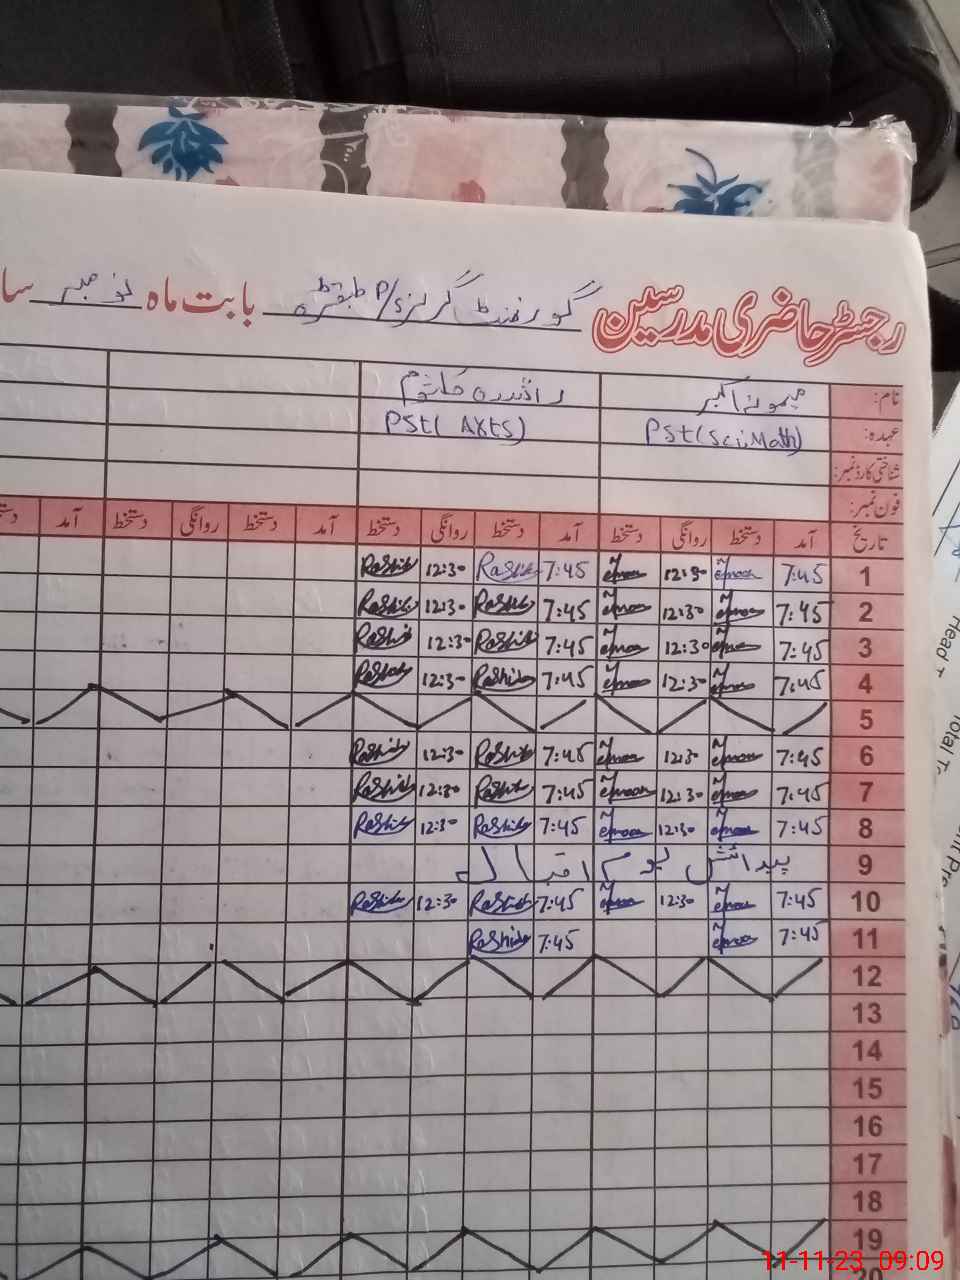 رجسٹر حاضری مدرسین گورنمنٹ گرلز P/S بابت ماہ نومبر سا
نام: میمونہ اکبر راشدہ کلثوم
عہدہ: Pst(Sci,Math) PSt( Arts)
شناختی کارڈ نمبر:
فون نمبر:
تاریخ آمد دستخط روانگی دستخط آمد دستخط روانگی دستخط آمد دستخط روانگی دستخط آمد
1 7:45 12:30 7:45 Rashida 12:30 Rashida
2 7:45 12:30 7:45 Rashida 12:30 Rashida
3 7:45 12:30 7:45 Rashida 12:30 Rashida
4 7:45 12:30 7:45 Rashida 12:30 Rashida
5
6 7:45 12:30 7:45 Rashida 12:30 Rashida
7 7:45 12:30 7:45 Rashida 12:30 Rashida
8 7:45 12:30 7:45 Rashida 12:30 Rashida
9 پیدائش یوم اقبال
10 7:45 12:30 7:45 Rashida 12:30 Rashida
11 7:45 7:45 Rashida
12
13
14
15
16
17
18
19
20
Head +
Total T
11-11-23 09:09